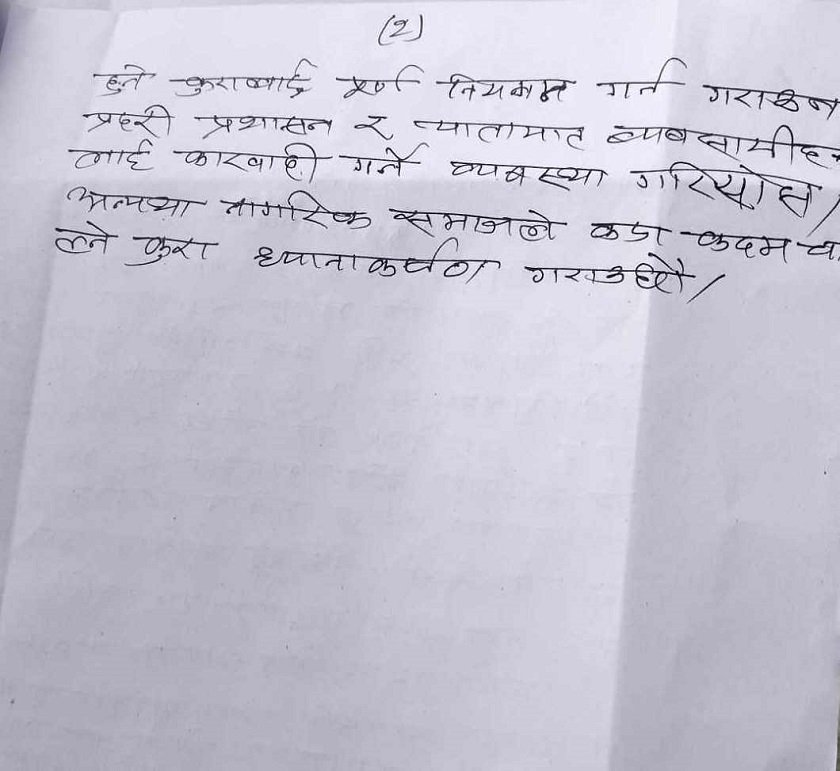 (२)
हुने कुरालाई पूर्ण नियमन गर्न गराउन
प्रहरी प्रशासन र यातायात व्यवसायीह
लाई कारवाही गर्ने व्यवस्था गरियोस/
अन्यथा नागरिक समाजले कडा कदम चा
ल्ने कुरा ध्यानाकर्षण गराउछौ/